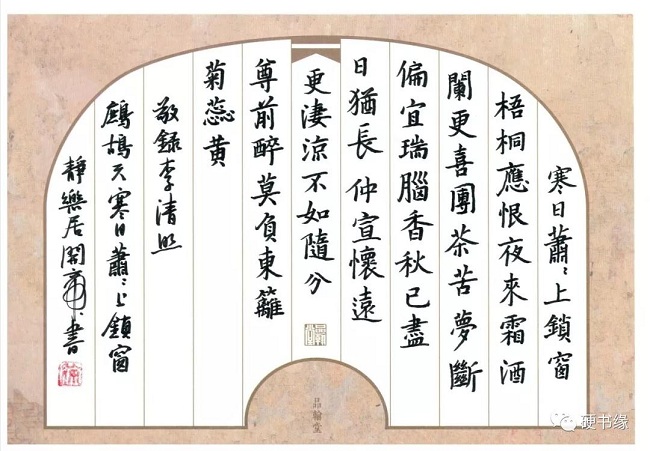 寒日蕭〻上鎖窗
梧桐應恨夜來霜酒
闌更喜團茶苦夢斷
偏宜瑞腦香秋已盡
日猶長仲宣懷遠
更淒涼不如隨分
尊前醉莫負東籬
菊蕊黃
敬錄李清照
鷓鴣天寒日蕭〻上鎖窗
靜樂居閑書
品翰堂
硬书缘